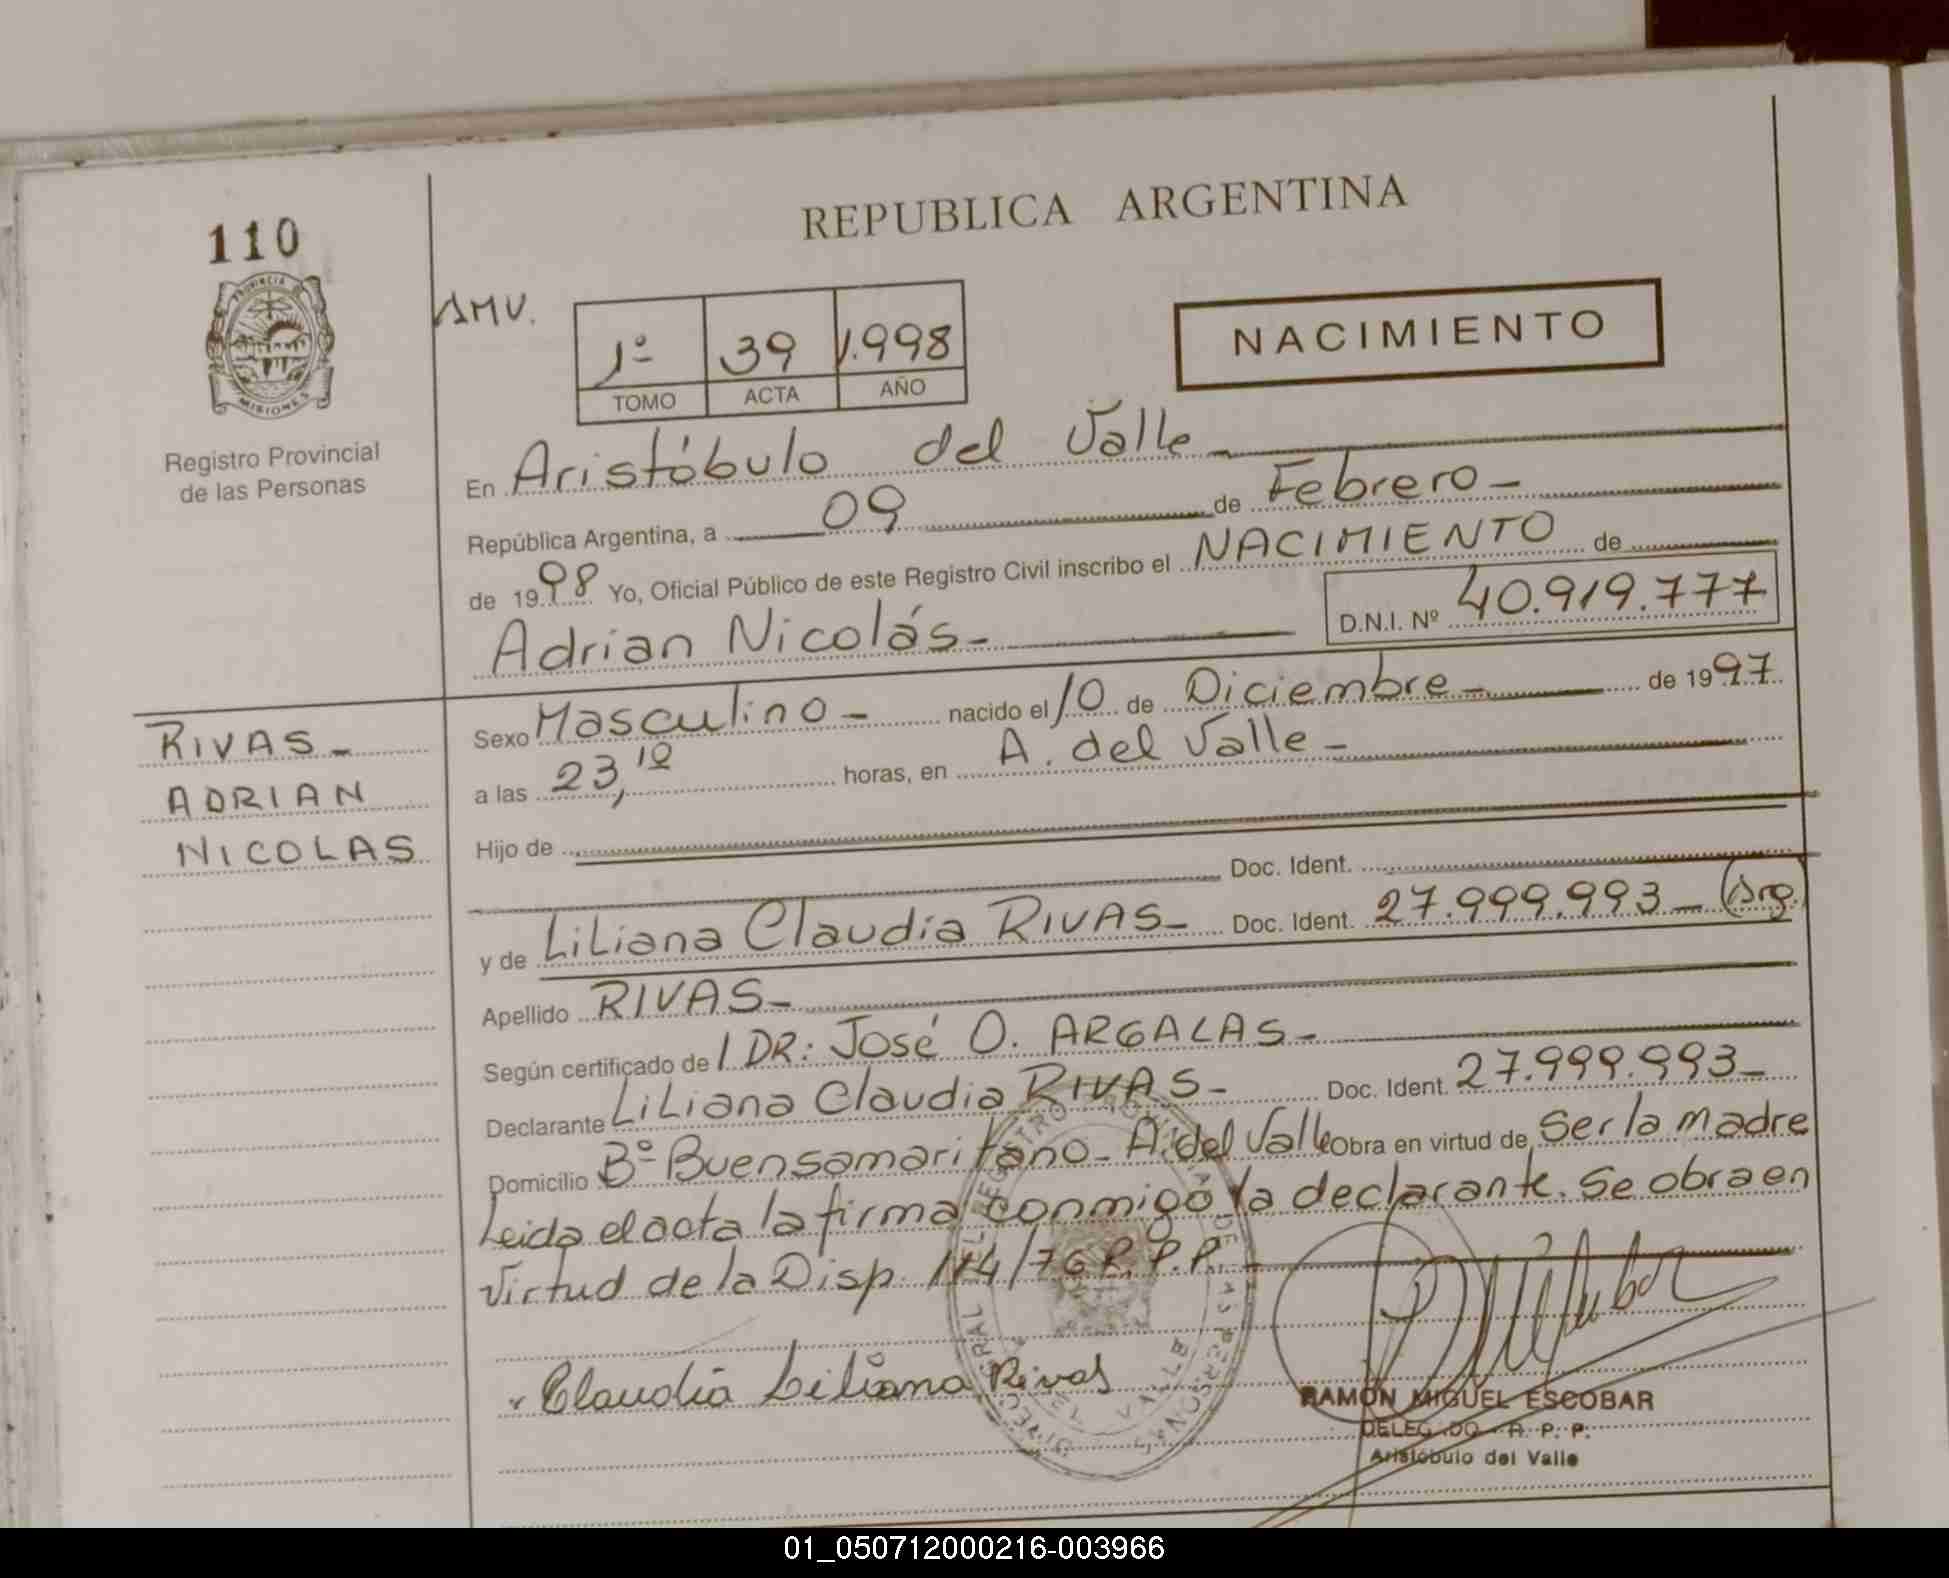 110
REPUBLICA ARGENTINA
PROVINCIA DE
MISIONES
AMV.
1º 39 1.998
TOMO ACTA AÑO
NACIMIENTO
Registro Provincial
de las Personas
En Aristóbulo del Valle
República Argentina, a 09 de Febrero
de 1998 Yo, Oficial Público de este Registro Civil inscribo el NACIMIENTO de
Adrian Nicolás D.N.I. Nº 40.919.777
RIVAS
ADRIAN
NICOLAS
Sexo Masculino nacido el 10 de Diciembre de 1997
a las 23,10 horas, en A. del Valle
Hijo de
Doc. Ident.
y de Liliana Claudia RIVAS Doc. Ident. 27.999.993 (Arg.)
Apellido RIVAS
Según certificado de DR: José O. ARGALAS
Declarante Liliana Claudia RIVAS Doc. Ident. 27.999.993
Domicilio Bº Buensamaritano - A. del Valle obra en virtud de Ser la madre
Leida el acta la firma conmigo la declarante. Se obra en
virtud de la Disp. 114/76 R.P.P.
Claudia Liliana Rivas
RAMON MIGUEL ESCOBAR
DELEGADO R. P. P.
Aristóbulo del Valle
01_050712000216-003966